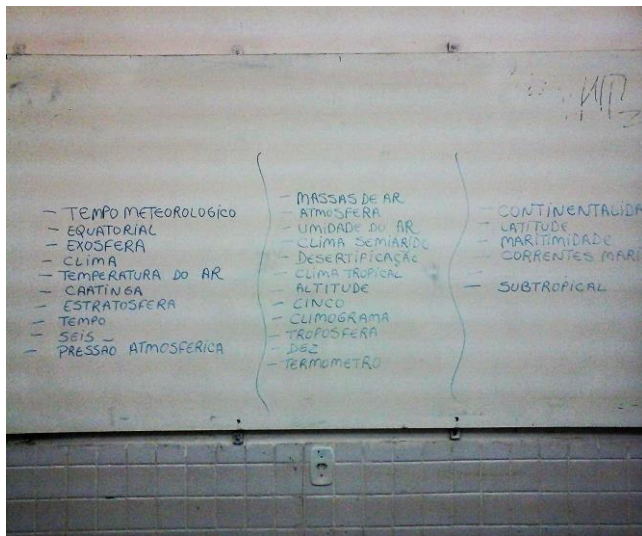 - TEMPO METEOROLOGICO
- EQUATORIAL
- EXOSFERA
- CLIMA
- TEMPERATURA DO AR
- CAATINGA
- ESTRATOSFERA
- TEMPO
- SEIS -
- PRESSÃO ATMOSFERICA
- MASSAS DE AR
- ATMOSFERA
- UMIDADE DO AR
- CLIMA SEMIARIDO
- DESERTIFICAÇÃO
- CLIMA TROPICAL
- ALTITUDE
- CINCO
- CLIMOGRAMA
- TROPOSFERA
- DEZ
- TERMOMETRO
- CONTINENTALIDA
- LATITUDE
- MARITIMIDADE
- CORRENTES MARI
- SUBTROPICAL